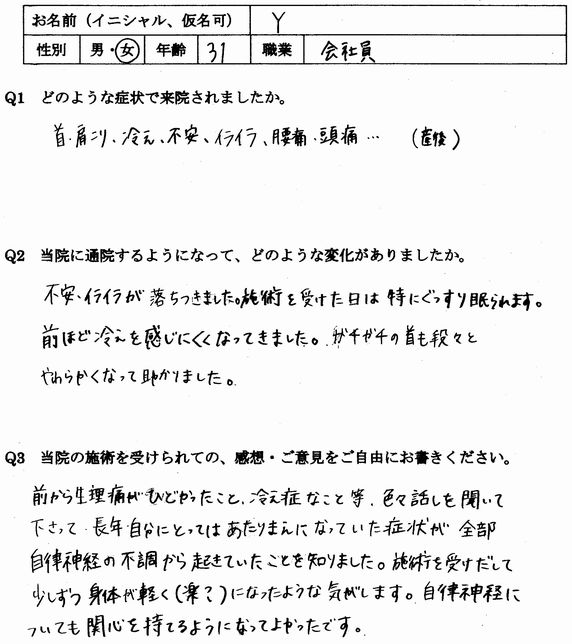 お名前（イニシャル、仮名可） Y
性別 男・女 年齢 31 職業 会社員
Q1 どのような症状で来院されましたか。
首・肩こり、冷え、不安、イライラ、腰痛・頭痛… （産後）
Q2 当院に通院するようになって、どのような変化がありましたか。
不安・イライラが落ちつきました。施術を受けた日は特にぐっすり眠られます。
前ほど冷えを感じにくくなってきました。ガチガチの首も段々と
やわらかくなって助かりました。
Q3 当院の施術を受けられての、感想・ご意見をご自由にお書きください。
前から生理痛がひどかったこと、冷え症なこと等、色々話しを聞いて
下さって、長年自分にとってはあたりまえになっていた症状が全部
自律神経の不調から起きていたことを知りました。施術を受けだして
少しずつ身体が軽く（楽？）になったような気がします。自律神経に
ついても関心を持てるようになってよかったです。